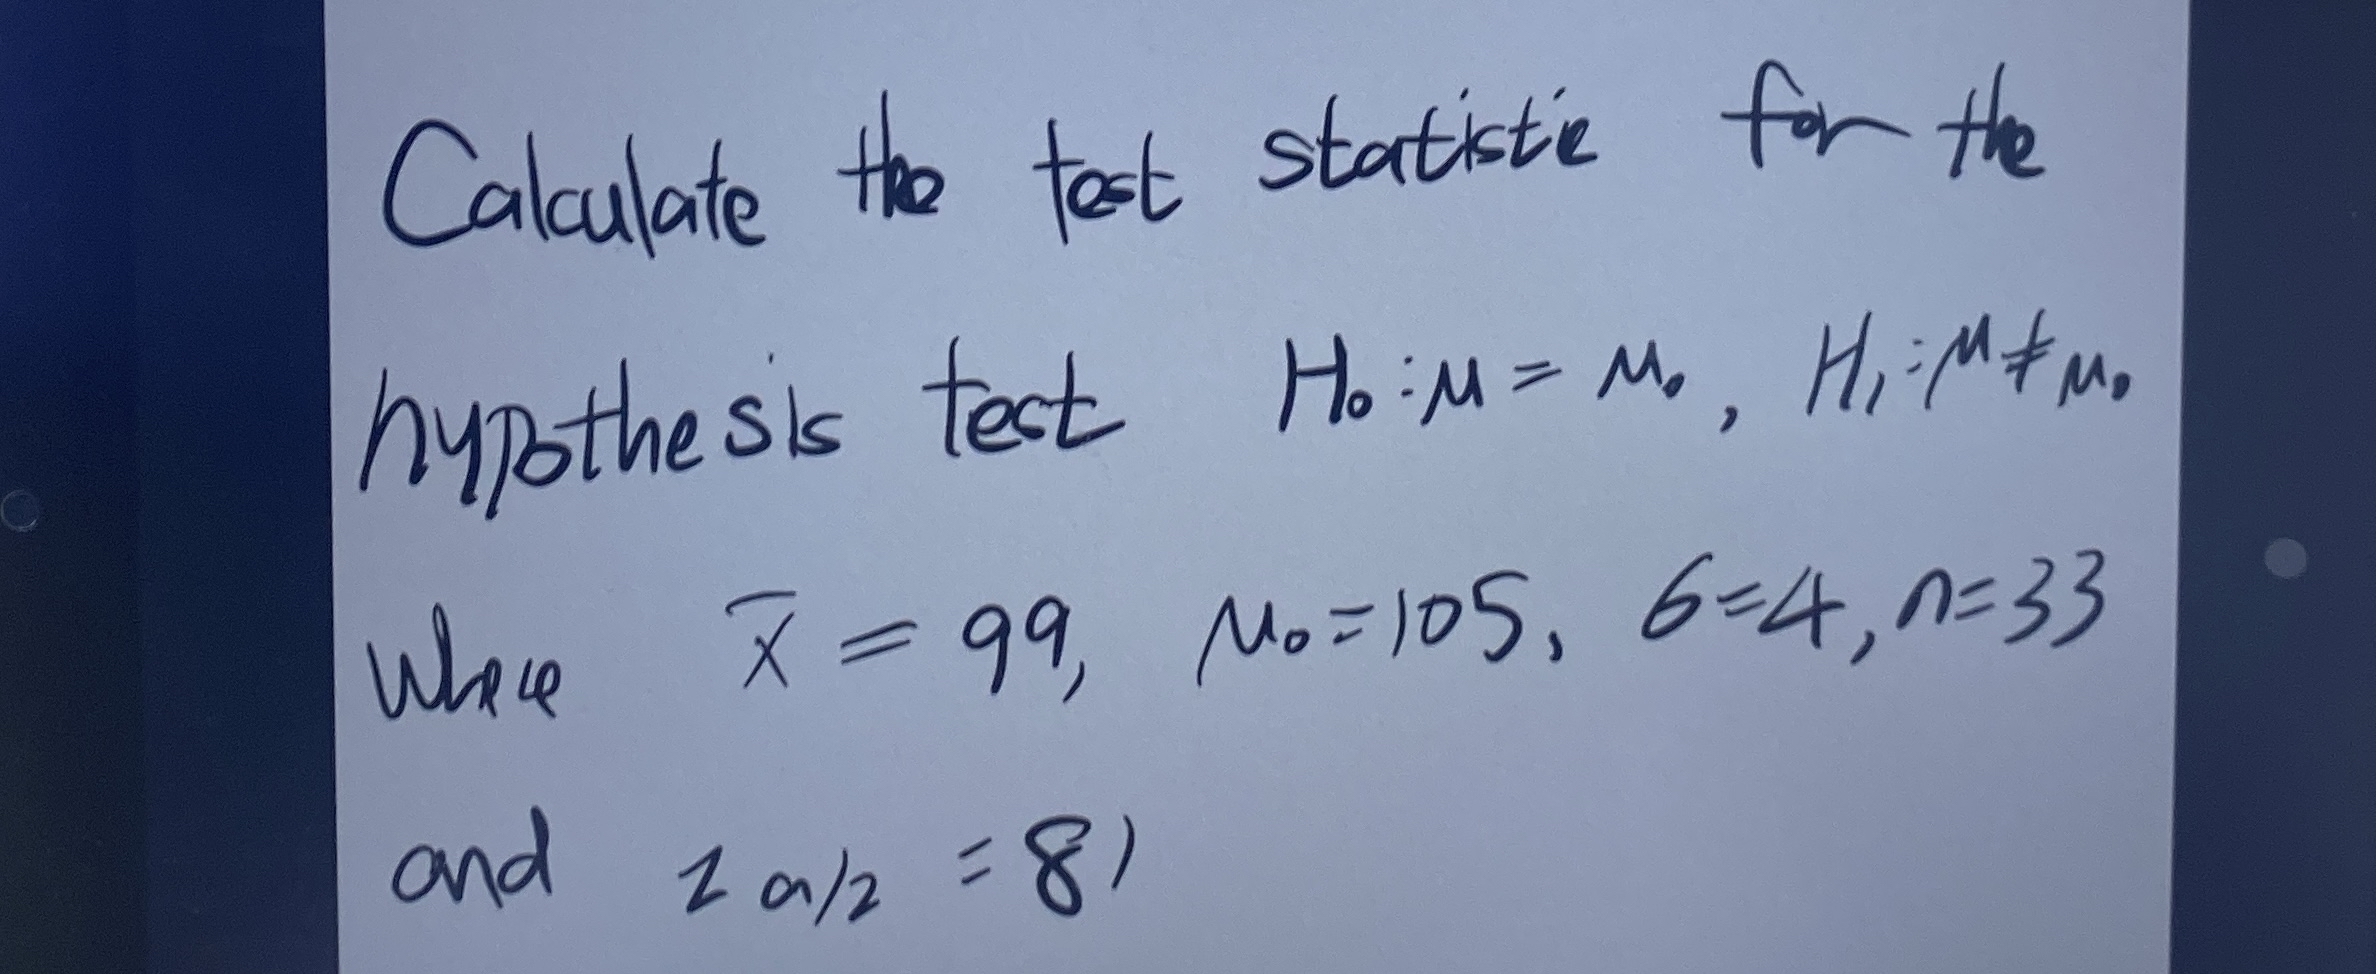 Calculate the test statistic for the
hypothesis test H₀:μ = μ₀, H₁:μ≠μ₀
Where x̄ = 99, μ₀=105, 6=4, n=33
and z a/2 = 81